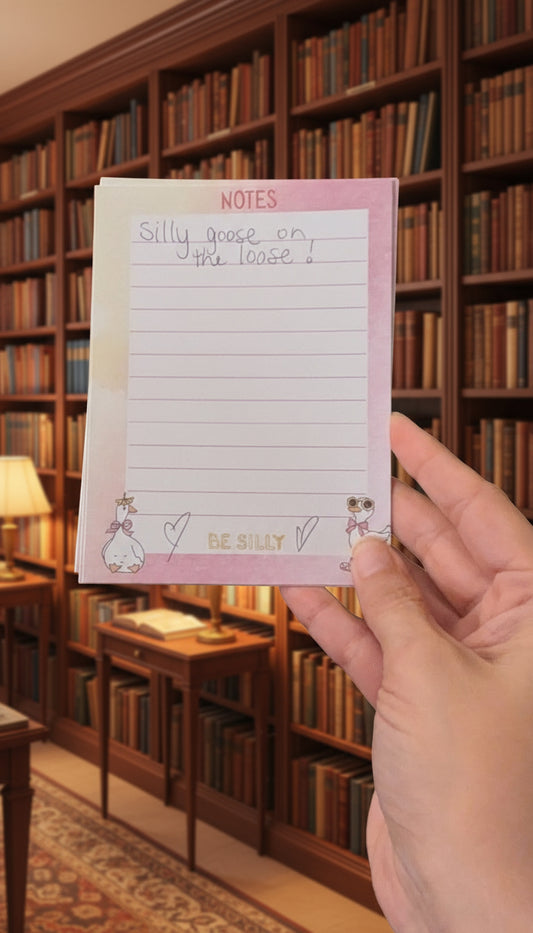 NOTES
Silly goose on
the loose!
BE SILLY